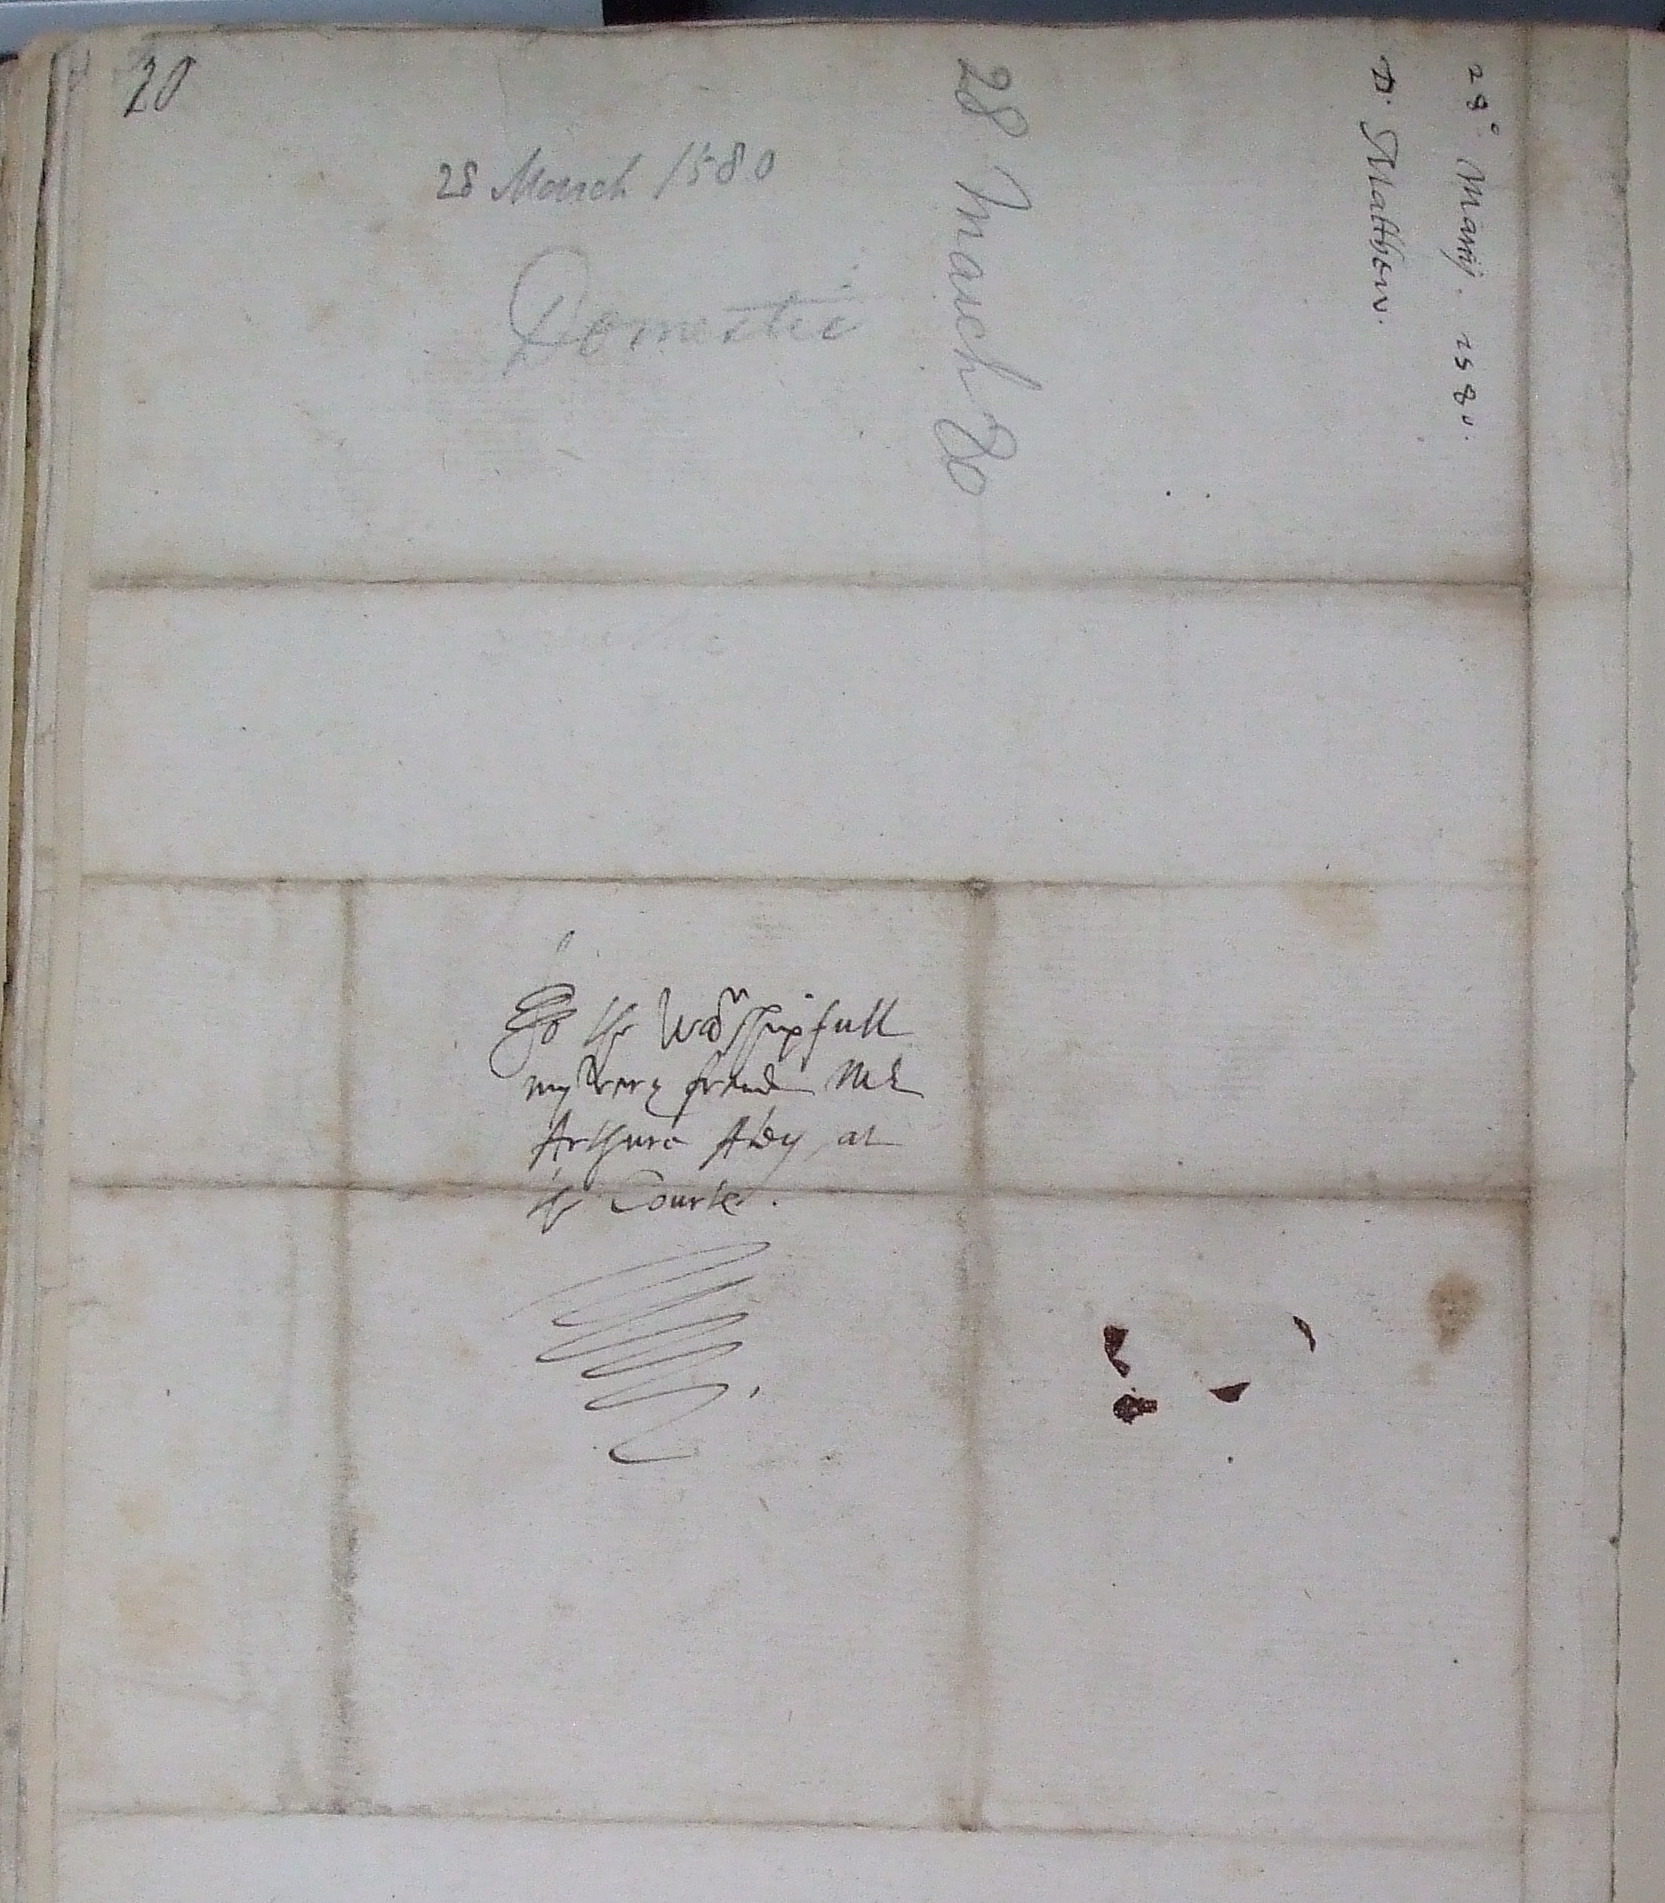 20
28 March 1580
Domestic
28 March 80
28° Martij. 1580.
D. Matthew.
To the Worshipfull
my very frend Mr
Arthure Atey at
the Courte.